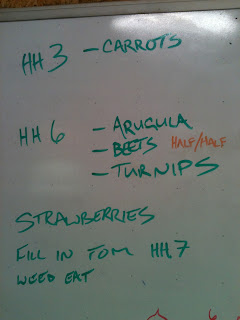 HH3 - CARROTS
HH6 - ARUGULA
- BEETS HALF/HALF
- TURNIPS
STRAWBERRIES
FILL IN TOM HH7
WEED EAT